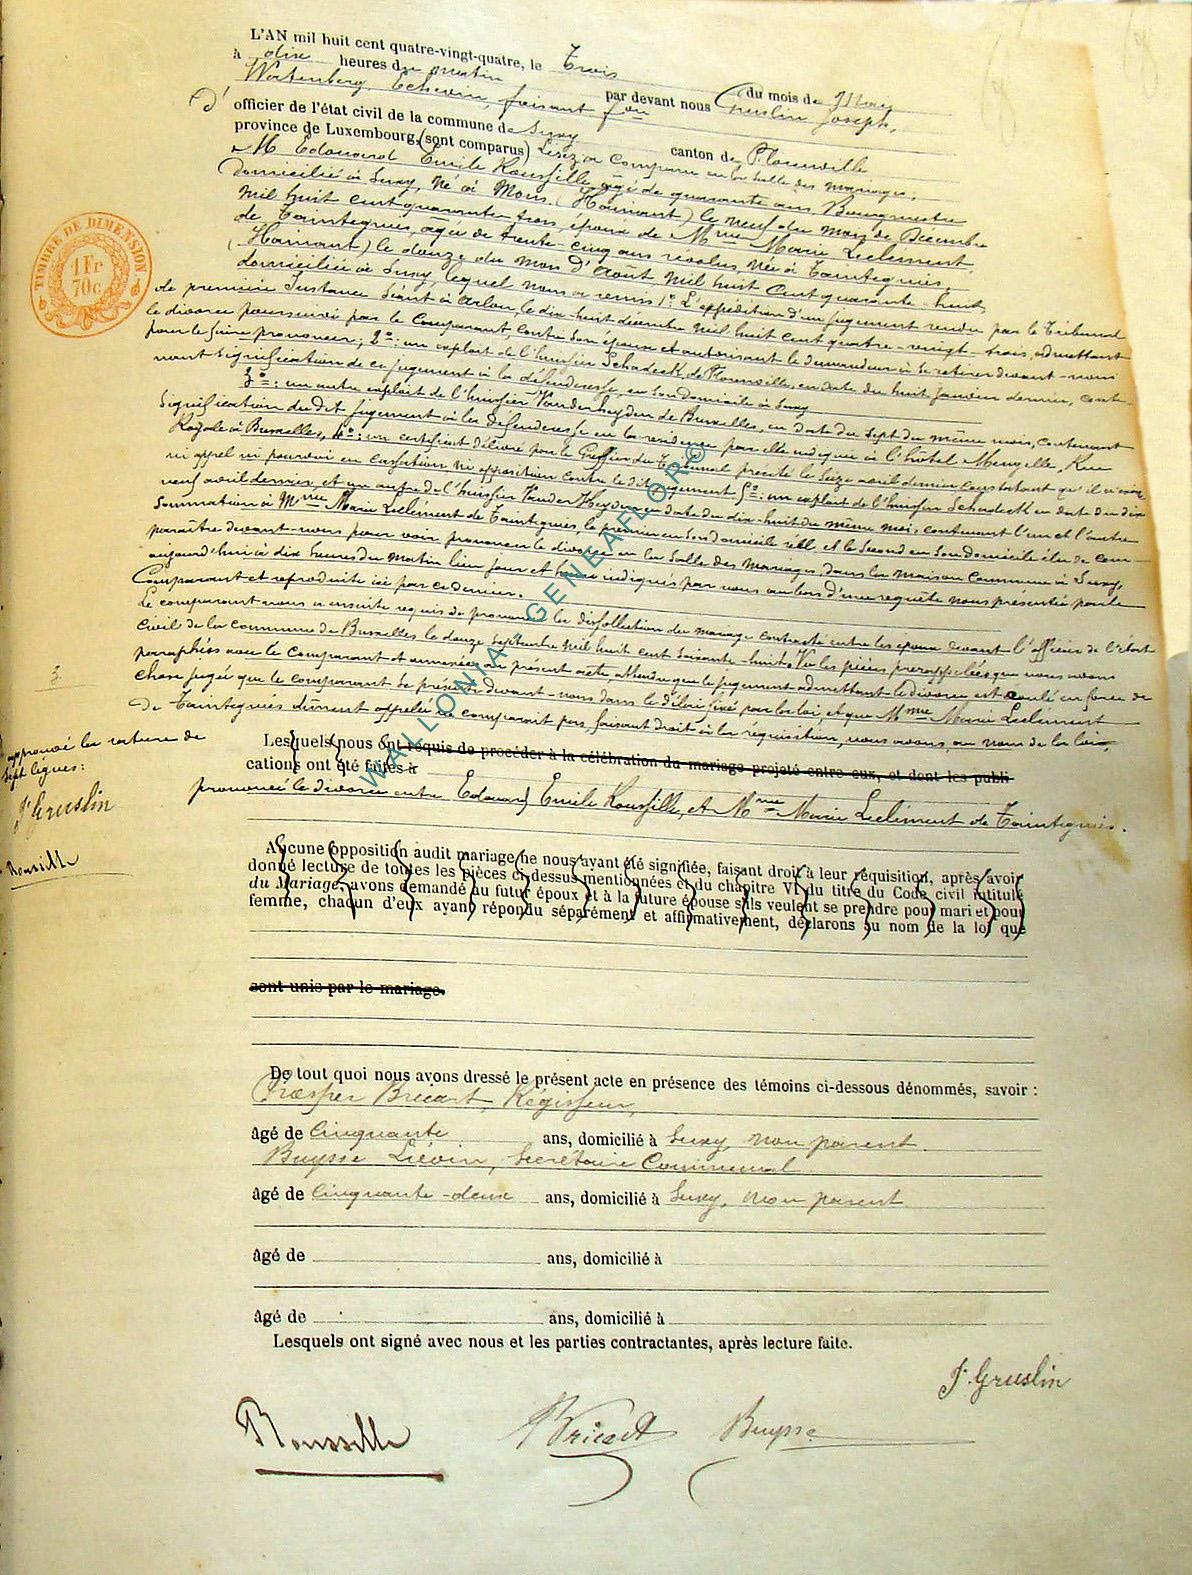 L'AN mil huit cent quatre-vingt-quatre, le Trois du mois de Mai
à dix heures du matin par devant nous Gruslin Joseph,
Echevin, faisant fon
d' officier de l'état civil de la commune de Suxy canton de Florenville
province de Luxembourg, (sont comparus) Lisez a Comparu en la Salle des mariages:
M Edouard Emile Roussille, agé de quarante ans, Bourgmestre
domicilié à Suxy, né à Mons (Hainaut) le neuf du mois de Décembre
mil huit cent quarante trois, époux de Mme Marie Leclément
de Taintegnies, agée de trente-cinq ans révolus, née à Taintegnies
(Hainaut) le douze du mois d'Août mil huit cent quarante-huit,
domiciliée à Suxy, lequel nous a remis 1° L'expédition d'un jugement rendu par le Tribunal
de première Instance séant à Arlon, le dix-huit décembre mil huit cent quatre-vingt-trois, admettant
le divorce poursuivi par le Comparant, contre son épouse et autorisant le demandeur à se retirer devant-nous
pour le faire prononcer; 2°: un exploit de l'huissier Schadeck de Florenville, en date du huit Janvier dernier, cont-
nant signification de ce jugement à la défenderesse, en son domicile à Suxy
3°: un autre exploit de l'huissier Vanderheyden de Bruxelles, en date du sept du même mois, contenant
signification du dit jugement à la défenderesse en la résidence par elle indiquée à l'hôtel Mengelle, Rue
Royale à Bruxelles, 4°: un certificat délivré par le Greffier du Tribunal précité le seize avril dernier constatant qu'il n'existe
ni appel ni pourvoi en cassation ni opposition contre le dit jugement 5°: un exploit de l'huissier Schadeck en date du dix
neuf avril dernier, et un autre de l'huissier Vander Heyden en date du dix-huit du même mois, contenant l'un et l'autre
sommation à Mme Marie Leclément de Taintegnies, le premier en son domicile réél, et le second en son domicile élu de com-
paraître devant-nous pour voir prononcer le divorce en la Salle des Mariages, dans la maison Commune à Suxy,
aujourd'hui à dix heures du matin lieu jour et heure indiqués par nous au bas d'une requête nous présentée par le
Comparant et reproduite ici par ce dernier.
Le comparant nous a ensuite requis de prononcer la dissolution du mariage contracté entre les époux devant l'officier de l'état
civil de la commune de Bruxelles le douze Septembre mil huit cent soixante-huit. Vu les pièces prérappelées que nous avons
paraphées avec le Comparant et annexées au présent acte, attendu que le jugement admettant le divorce est coulé en force de
chose jugée que le comparant se présente devant-nous dans le délai fixé par la loi, et que Mme Marie Leclément
de Taintegnies dûment appelée ne comparait pas, faisant droit à la réquisition, nous avons, au nom de la loi,
Lesquels nous ont requis de procéder à la célébration du mariage projeté entre eux, et dont les publi
cations ont été faites à
prononcé le divorce entre Edouard Emile Roussille, et Mme Marie Leclément de Taintegnies.
approuvé la rature de
sept lignes:
J Gruslin
Roussille
Aucune opposition audit mariage ne nous ayant été signifiée, faisant droit à leur réquisition, après avoir
donné lecture de toutes les pièces ci-dessus mentionnées et du chapitre VI du titre du Code civil intitulé
du Mariage, avons demandé au futur époux et à la future épouse s'ils veulent se prendre pour mari et pour
femme, chacun d'eux ayant répondu séparément et affirmativement, déclarons au nom de la loi que
sont unis par le mariage.
De tout quoi nous avons dressé le présent acte en présence des témoins ci-dessous dénommés, savoir :
Prosper Bricart, Régisseur,
âgé de Cinquante ans, domicilié à Suxy, non parent
Buysse Liévin, Secrétaire Communal
âgé de Cinquante-deux ans, domicilié à Suxy, non parent
âgé de ans, domicilié à
âgé de ans, domicilié à
Lesquels ont signé avec nous et les parties contractantes, après lecture faite.
J. Gruslin
Roussille Bricart Buysse
TIMBRE DE DIMENSION
1 Fr
70c
WALLONIA GENEAFLOR©